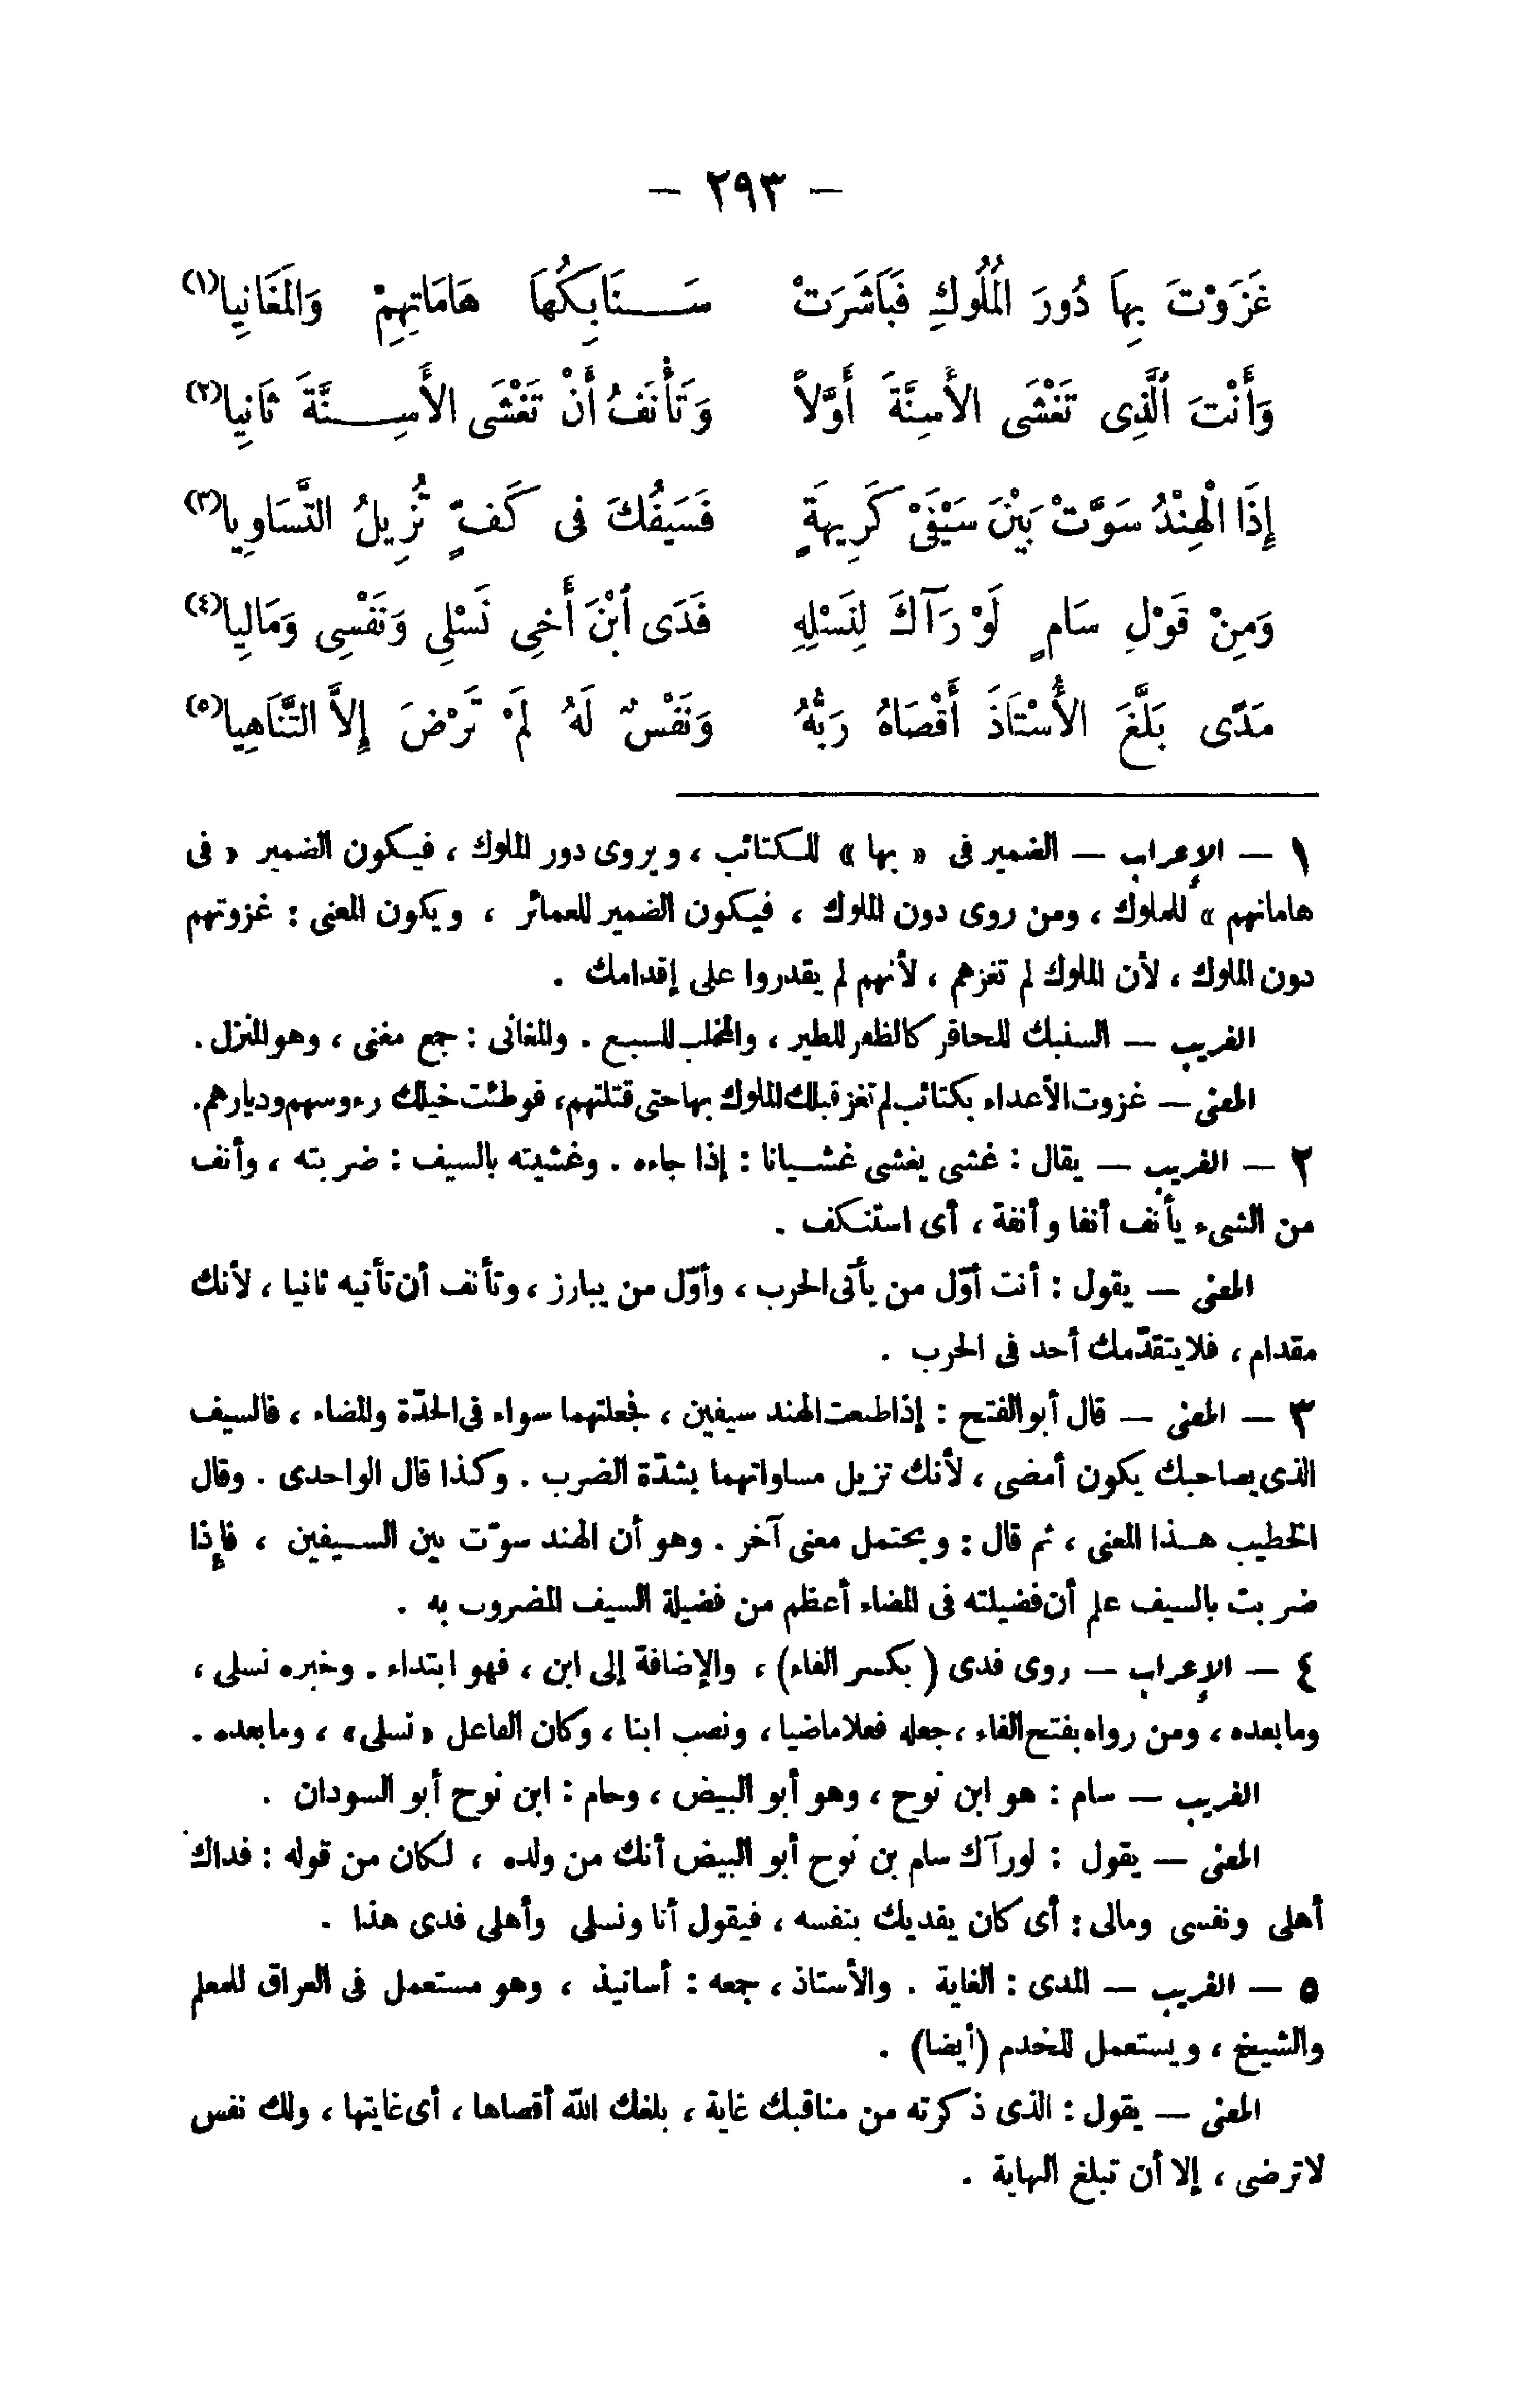 — ٢٩٣ —
غَزَوْتَ بِهَا دُورَ الْمُلُوكِ فَبَاشَرَتْ سَنَابِكُهَا هَامَاتِهِمْ وَالْمَغَانِيا(١)
وَأَنْتَ الَّذِى تَغْشَى الأَسِنَّةَ أَوَّلاً وَتَأْنَفُ أَنْ تَغْشَى الأَسِنَّةَ ثَانِيا(٢)
إِذَا الْهِنْدُ سَوَّتْ بَيْنَ سَيْفَىْ كَرِيهَةٍ فَسَيفُكَ فى كَفٍّ تُزِيلُ التَّسَاوِيا(٣)
وَمِنْ قَوْلِ سَامٍ لَوْ رَآكَ لِنَسْلِهِ فَدَى ابْنَ أَخِى نَسْلِى وَنَفْسِى وَمَالِيا(٤)
مَدًى بَلَّغَ الأُسْتَاذَ أَقْصَاهُ رَبُّهُ وَنَفْسٌ لَهُ لَمْ تَرْضَ إِلاَّ التَّنَاهِيا(٥)
١ — الإعراب — الضمير فى « بها » للكتائب ، ويروى دور الملوك ، فيكون الضمير « فى
هاماتهم » للملوك ، ومن روى دون الملوك ، فيكون الضمير للعمائر ، ويكون المعنى : غزوتهم
دون الملوك ، لأن الملوك لم تغزهم ، لأنهم لم يقدروا على إقدامك .
الغريب — السنبك للحافر كالظفر للطير ، والمخلب للسبع . والمغانى : جمع مغنى ، وهو المنزل .
المعنى — غزوت الأعداء بكتائب لم تغز قبلك الملوك بها حتى قتلتهم، فوطئت خيلك رءوسهم وديارهم.
٢ — الغريب — يقال : غشى يغشى غشيانا : إذا جاءه . وغشيته بالسيف : ضربته ، وأنف
من الشىء يأنف أنفا وأنفة ، أى استنكف .
المعنى — يقول : أنت أوّل من يأتى الحرب ، وأوّل من يبارز ، وتأنف أن تأتيه ثانيا ، لأنك
مقدام ، فلا يتقدّمك أحد فى الحرب .
٣ — المعنى — قال أبو الفتح : إذا طبعت الهند سيفين ، فجعلتهما سواء فى الحدّة والمضاء ، فالسيف
الذى يصاحبك يكون أمضى ، لأنك تزيل مساواتهما بشدّة الضرب . وكذا قال الواحدى . وقال
الخطيب هذا المعنى ، ثم قال : ويحتمل معنى آخر . وهو أن الهند سوّت بين السيفين ، فإذا
ضربت بالسيف علم أن فضيلته فى المضاء أعظم من فضيلة السيف المضروب به .
٤ — الإعراب — روى فدى ( بكسر الفاء) ، والإضافة إلى ابن ، فهو ابتداء . وخبره نسلى ،
وما بعده ، ومن رواه بفتح الفاء ، جعله فعلا ماضيا ، ونصب ابنا ، وكان الفاعل « نسلى » ، وما بعده .
الغريب — سام : هو ابن نوح ، وهو أبو البيض ، وحام : ابن نوح أبو السودان .
المعنى — يقول : لو رآك سام بن نوح أبو البيض أنك من ولده ، لكان من قوله : فداك
أهلى ونفسى ومالى : أى كان يفديك بنفسه ، فيقول أنا ونسلى وأهلى فدى هذا .
٥ — الغريب — المدى : الغاية . والأستاذ ، جمعه : أساتيذ ، وهو مستعمل فى العراق للمعلم
والشيخ ، ويستعمل للخدم (أيضا) .
المعنى — يقول : الذى ذكرته من مناقبك غاية ، بلغك الله أقصاها ، أى غايتها ، ولك نفس
لا ترضى ، إلا أن تبلغ النهاية .